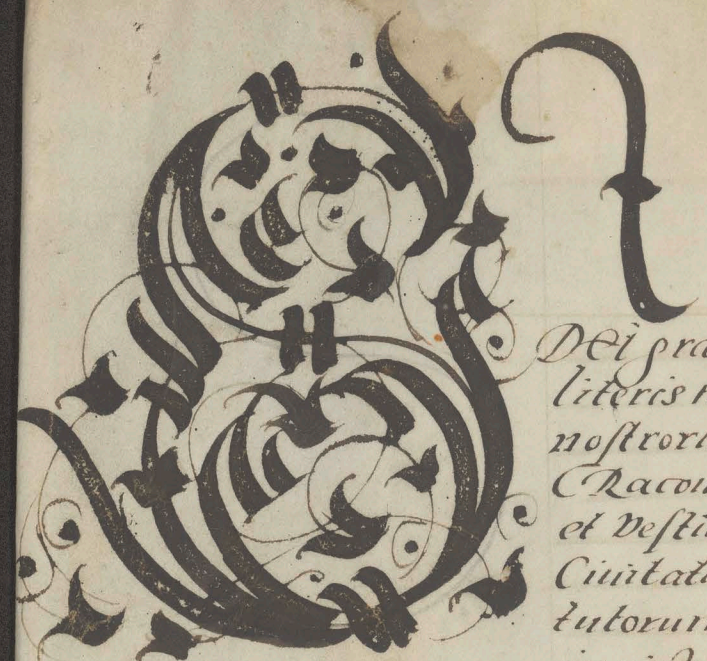 SI
DEI gra
literis
noſtror
CRacou
et Veſti
Ciuitat
tutorum